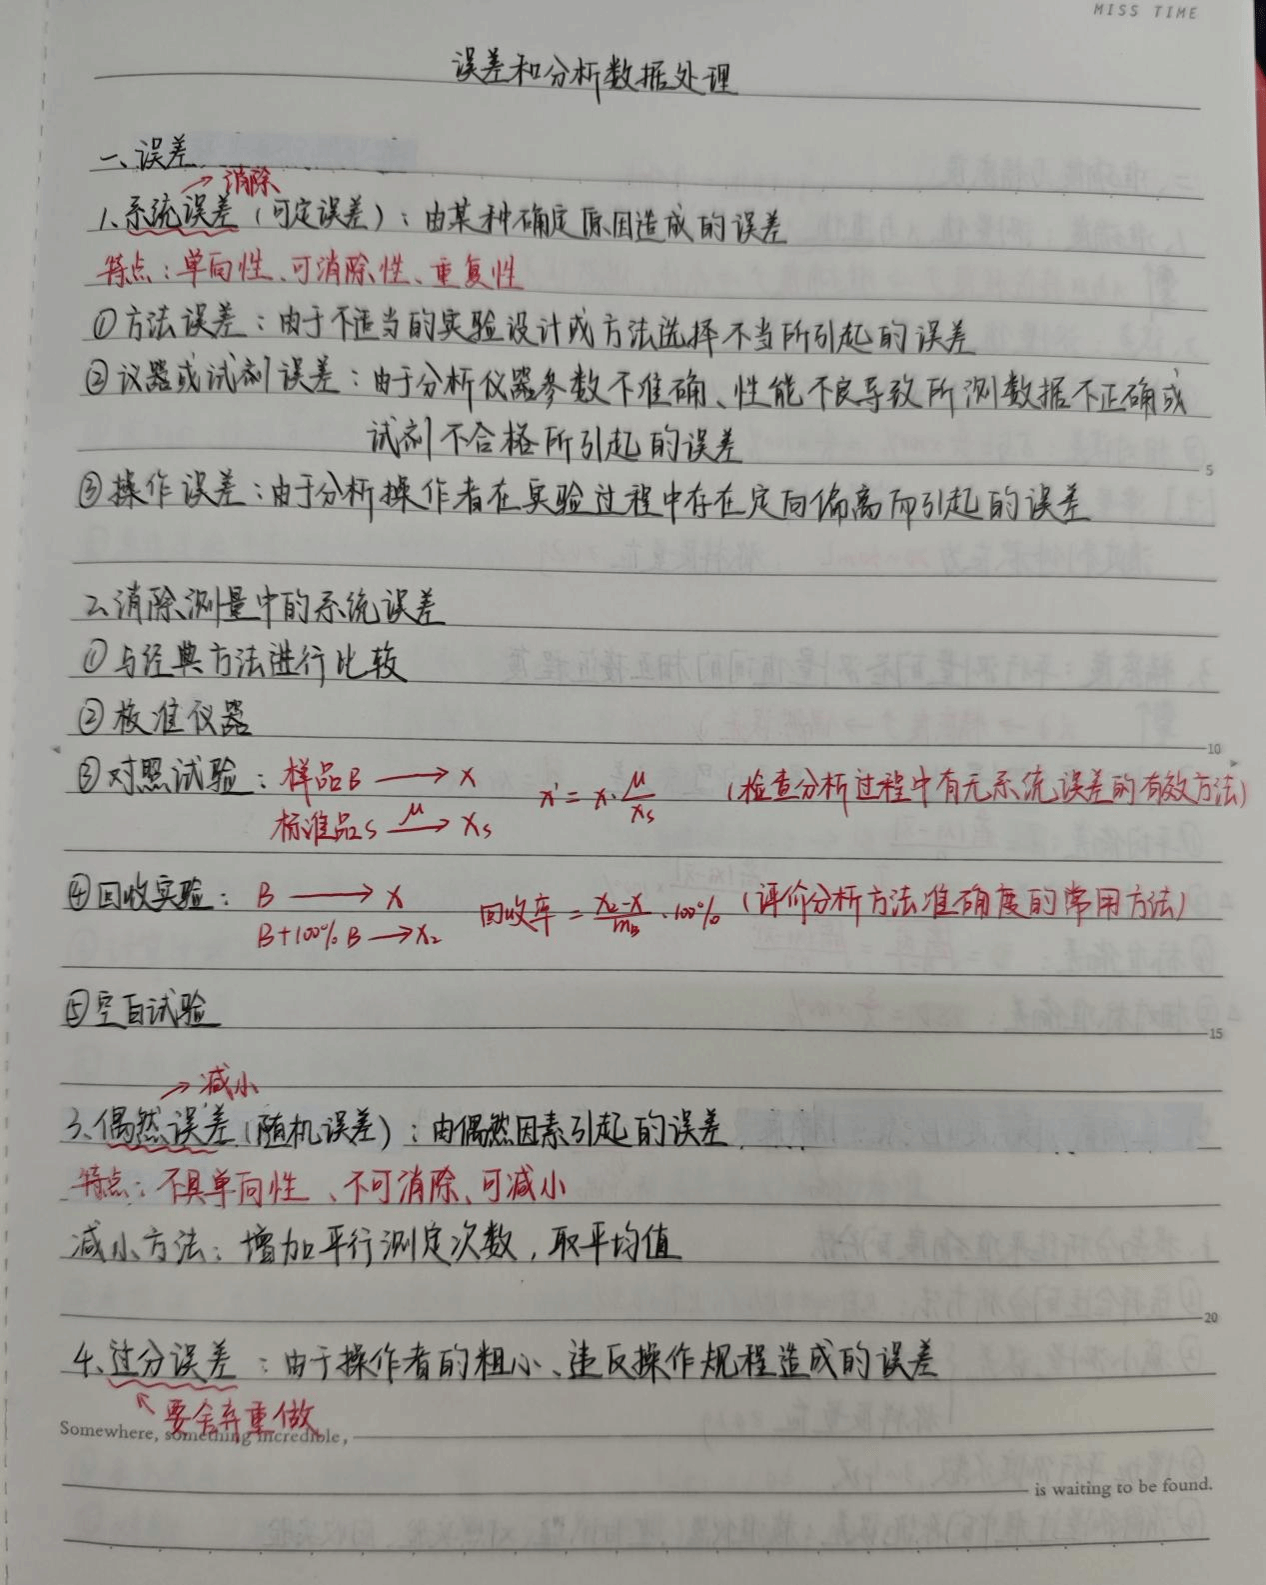 MISS TIME
误差和分析数据处理
一、误差
→ 消除
1、系统误差（可定误差）：由某种确定原因造成的误差
特点：单向性、可消除性、重复性
①方法误差：由于不适当的实验设计或方法选择不当所引起的误差
②仪器或试剂误差：由于分析仪器参数不准确、性能不良导致所测数据不正确或
试剂不合格所引起的误差
5
③操作误差：由于分析操作者在实验过程中存在定向偏离而引起的误差
2、消除测量中的系统误差
①与经典方法进行比较
②校准仪器
10
③对照试验：样品B ⟶ x x' = x·μ/xs （检查分析过程中有无系统误差的有效方法）
标准品s μ⟶ xs
④回收实验：B ⟶ x 回收率 = (x₂-x)/mB ·100% （评价分析方法准确度的常用方法）
B+100% B ⟶ x₂
⑤空白试验
15
→ 减小
3、偶然误差（随机误差）：由偶然因素引起的误差
特点：不具单向性、不可消除、可减小
减小方法：增加平行测定次数，取平均值
20
4、过分误差：由于操作者的粗小、违反操作规程造成的误差
↖ 要舍弃重做
Somewhere, something incredible,
is waiting to be found.